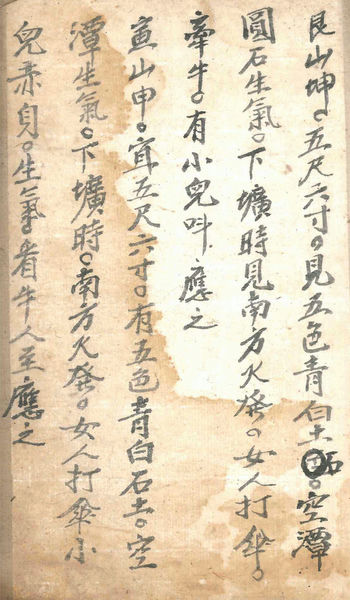 艮山坤。五尺六寸。見五色青白土石。空潭
圓石生氣。下壙時見南方火發。女人打傘。
牽牛。有小兒呌應之
寅山申。宜五尺六寸。有五色青白石土。空
潭生氣。下壙時。南方火發。女人打傘小
兒赤身。生氣。看牛人至應之